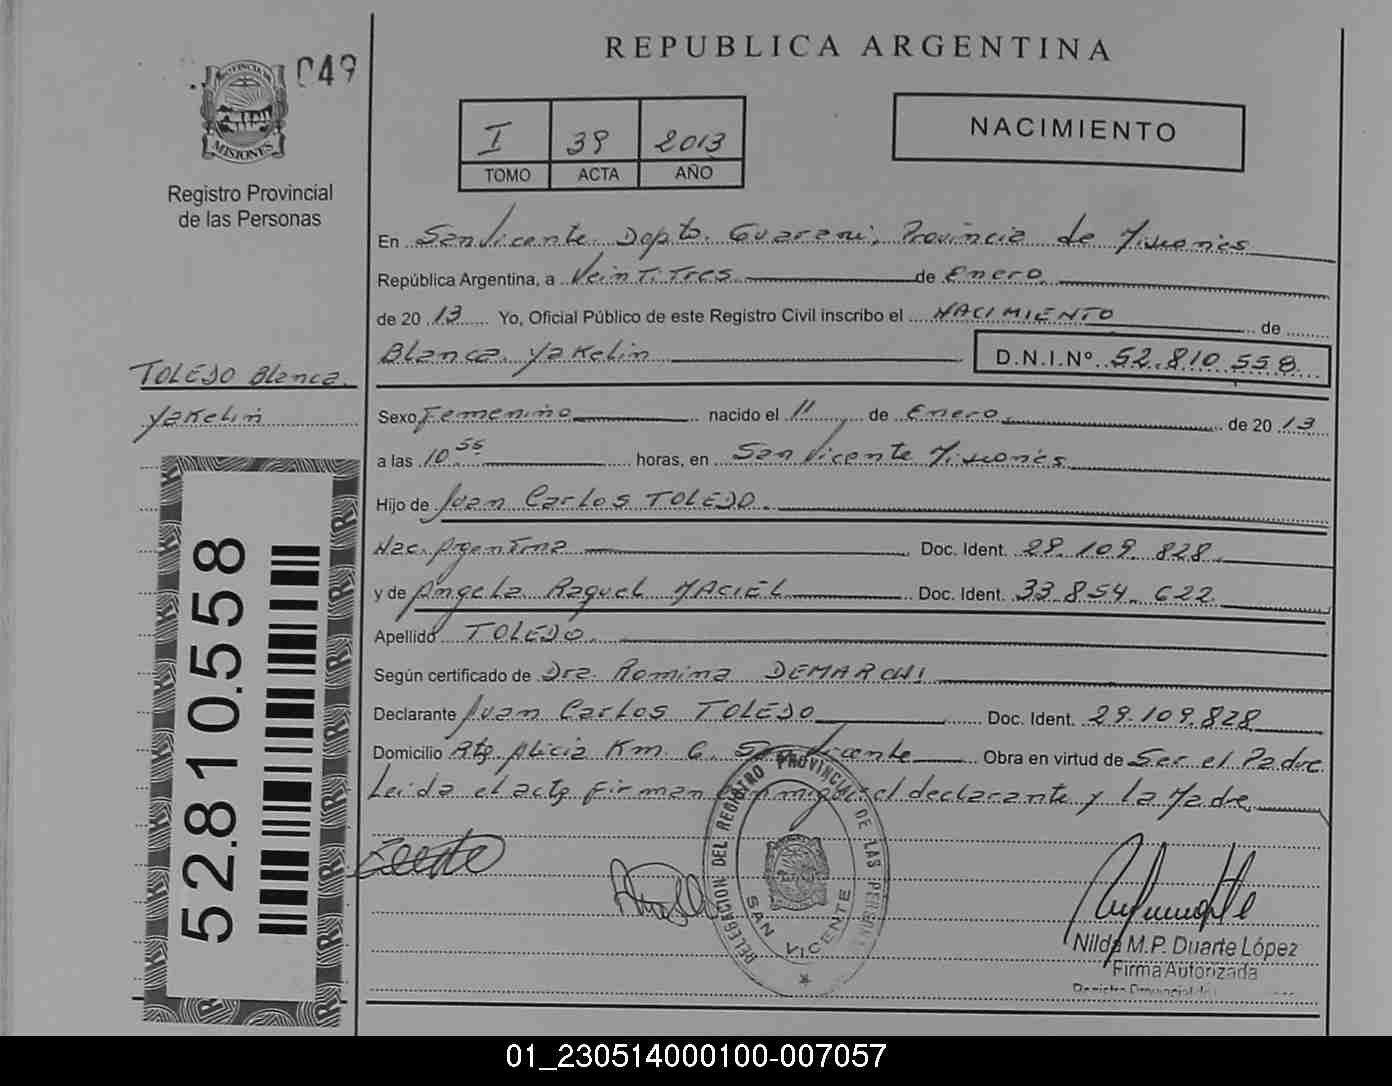 049
PROVINCIA DE
MISIONES
Registro Provincial
de las Personas
REPUBLICA ARGENTINA
I 39 2013
TOMO ACTA AÑO
NACIMIENTO
En San Vicente Dopto. Guarani, Provincia de Misiones
República Argentina, a Veintitres de Enero
de 2013 Yo, Oficial Público de este Registro Civil inscribo el NACIMIENTO de
Blanca Yakelin D.N.I.Nº 52.810.558
TOLEDO Blanca
Yakelin
Sexo Femenino nacido el 11 de Enero de 2013
a las 10.55 horas, en San Vicente Misiones
Hijo de Juan Carlos TOLEDO.
Nac. Argentina Doc. Ident. 29.109.828
y de Angela Raquel MACIEL Doc. Ident. 33.854.622
Apellido TOLEDO.
Según certificado de Dra. Romina DEMARCHI
Declarante Juan Carlos TOLEDO Doc. Ident. 29.109.828
Domicilio Rtg. Alicia Km. 6. San Vicente Obra en virtud de Ser el Padre
Leida el acta firman conmigo el declarante y la Madre
52.810.558
DELEGACION DEL REGISTRO PROVINCIAL DE LAS PERSONAS
SAN VICENTE
Nilda M.P. Duarte López
Firma Autorizada
Registro Provincial de
01_230514000100-007057